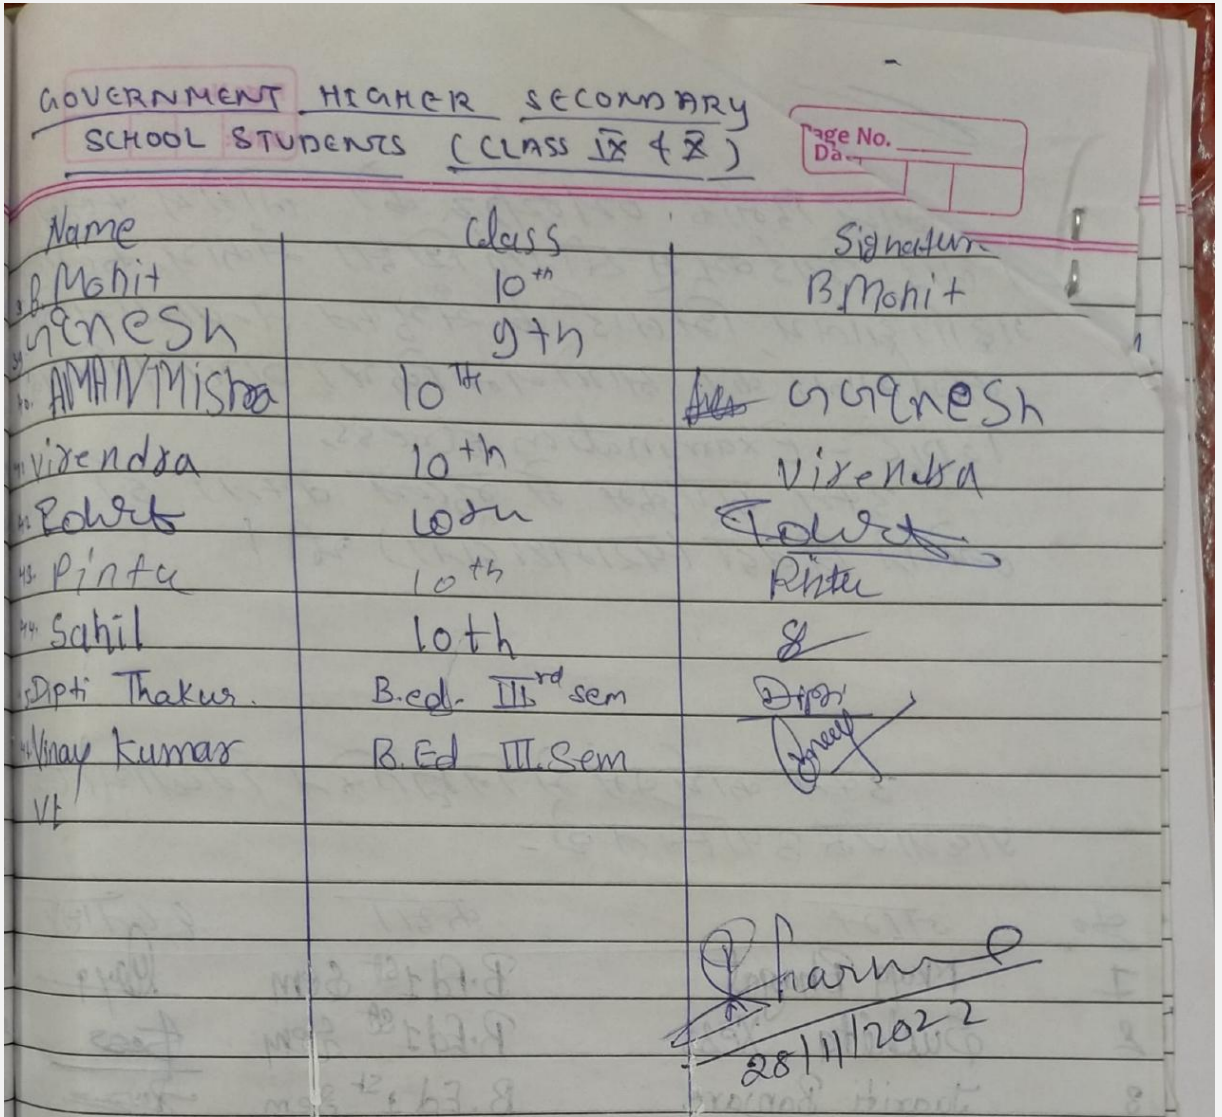 GOVERNMENT HIGHER SECONDARY
SCHOOL STUDENTS (CLASS IX & X)
Page No.
Name Class Signatur
B. Mohit 10th B.Mohit
Ganesh 9th
AMAN Mishra 10TH Ganesh
Virendra 10th Virendra
10th
Pintu 10th Pintu
Sahil 10th
Dipti Thakur. B.ed. IIIrd sem Dipti
Vinay Kumar B.Ed III.Sem
Vt
Sharma
28/11/2022